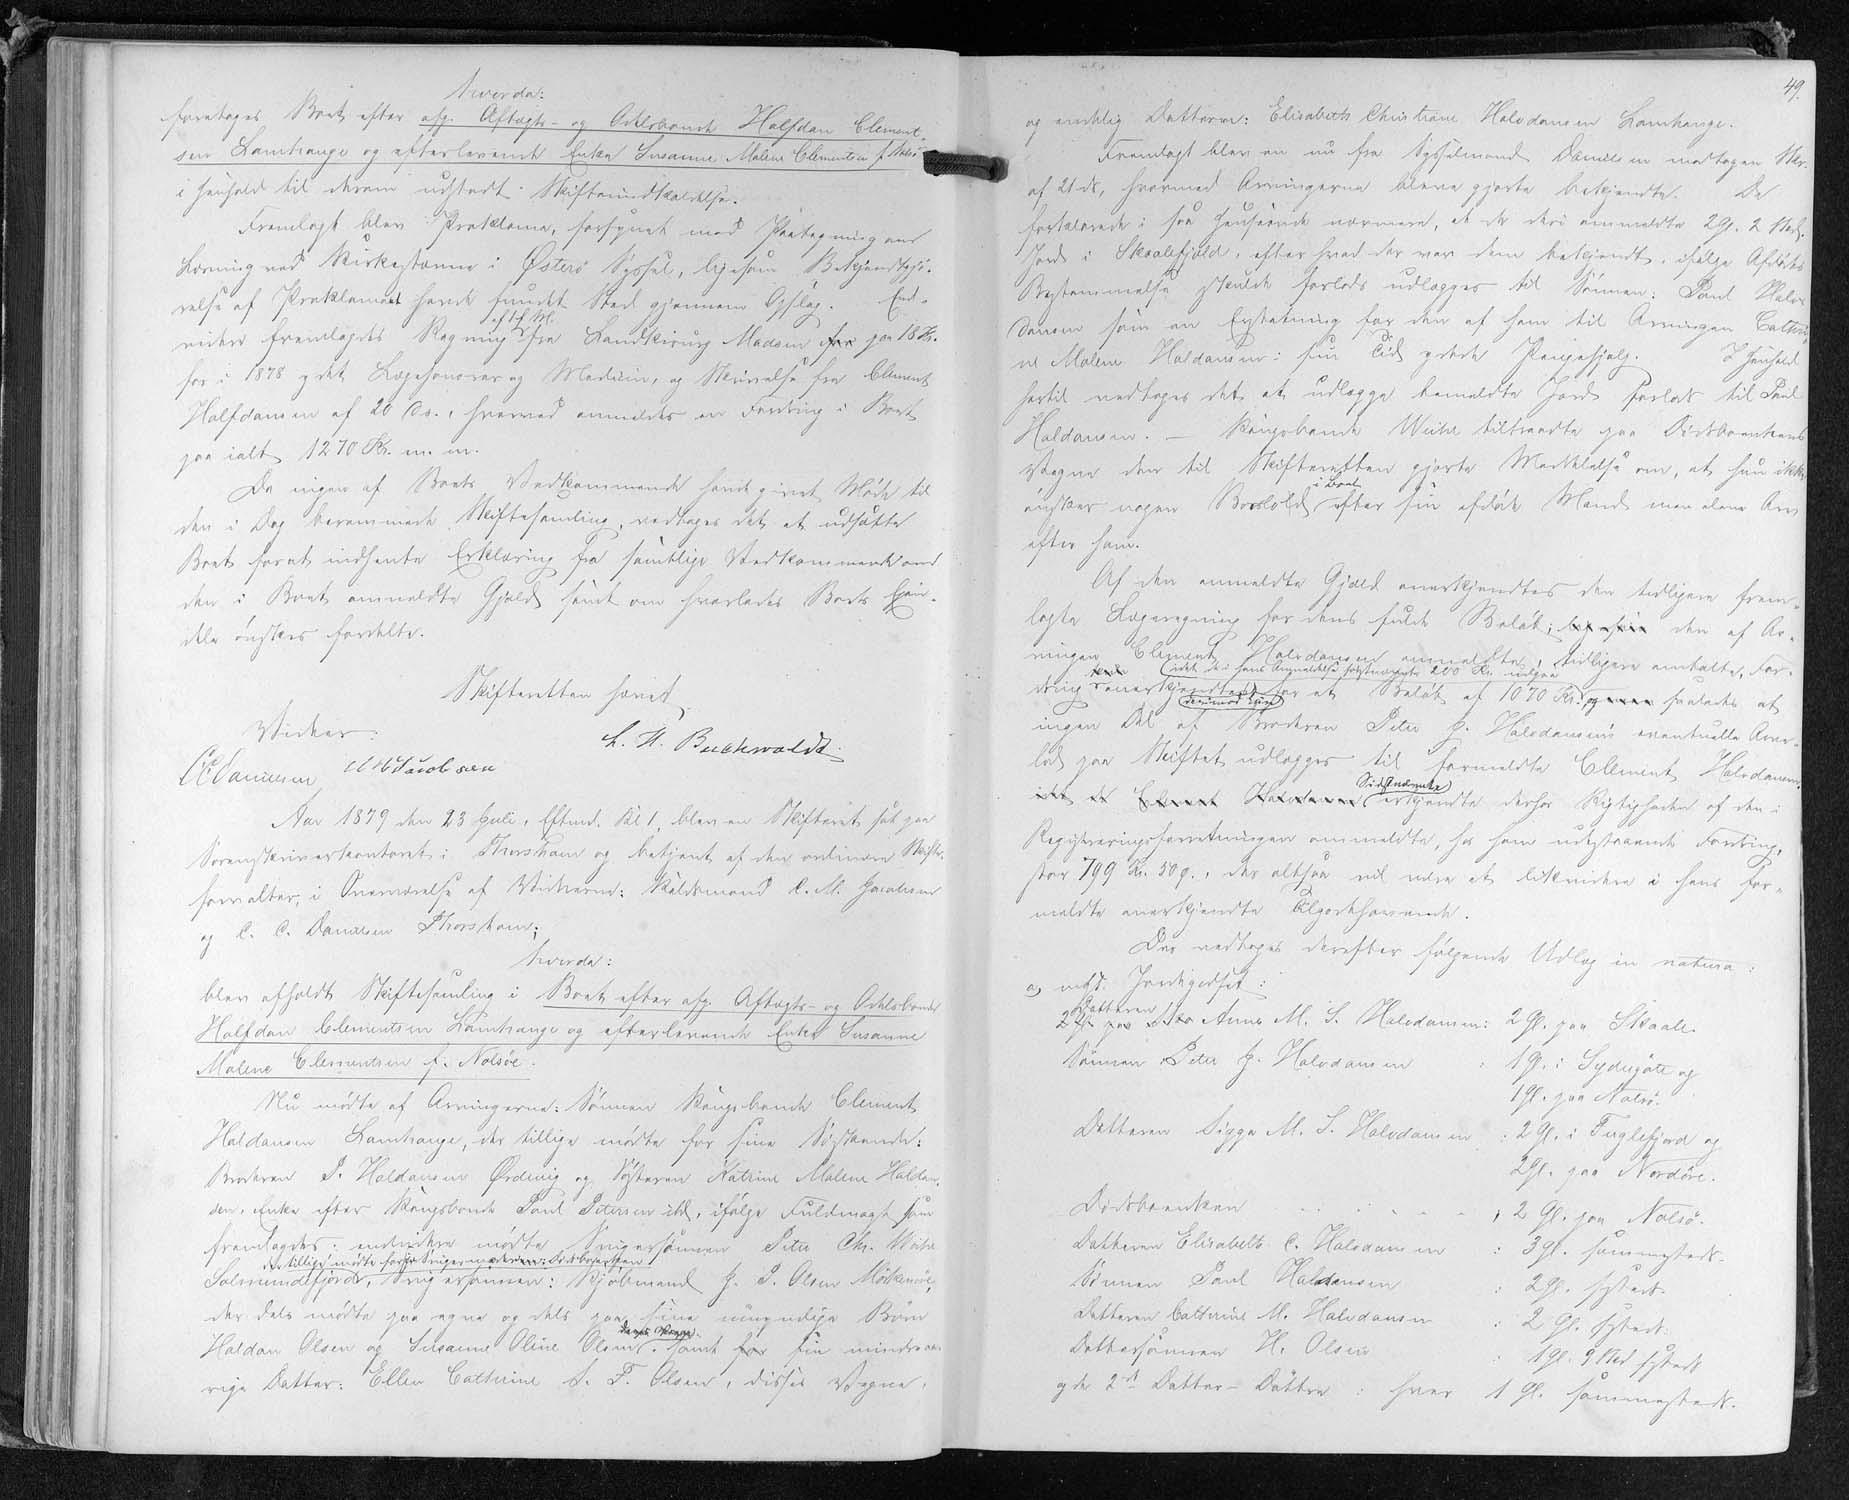 hvorda:
foretoges Boet efter afg. Aftægts- og Odelsbonde Halfdan Clement-
sen Lamhauge og efterlevende Enke Susanne Malene Clementsen f. Nolsø
i Henhold til derom udstedt Skifteindkaldelse.
Fremlagt blev Proklama, forsynet med Paategning om
Læsning ved Kirkestævne i Østerø Syssel, ligesom Bekjendtgjø-
relse af Proklamaet havde fundet Sted gjennem Opslag. End-
videre fremlagdes Regning af 1 f. M. fra Landkirurg Madsen for paa 18 Kr.
for i 1878 ydet Lægehonorar og Medicin, og Skrivelse fra Clement
Halfdansen af 20 ds., hvorved anmeldes en Fordring i Boet
paa ialt 1270 Kr. m. m.
Da ingen af Boets Vedkommende havde givet Møde til
den i Dag berammede Skiftesamling, vedtoges det at udsætte
Boet for at indhente Erklæring fra samtlige Vedkommende om
den i Boet anmeldte Gjæld samt om hvorledes Boets Ejen-
dele ønskes fordelte.
Skifteretten hævet
Vidner:
L. H. Buchwaldt.
C C Danielsen C M Jacobsen
Aar 1879 den 23 Juli, Eftmd. Kl 1, blev en Skifteret sat paa
Sorenskriverkontoret i Thorshavn og betjent af den ordinære Skifte-
forvalter, i Overværelse af Vidnerne: C. M. Jacobsen
og C. C. Danielsen Thorshavn;
hvorda:
blev afholdt Skiftesamling i Boet efter afg. Aftægts- og Odelsbonde
Halfdan Clementsen Lamhauge og efterlevende Enke Susanne
Malene Clementsen f. Nolsøe.
Nu mødte af Arvingerne: Sønnen Kongsbonde Clement
Haldansen Lamhauge, der tillige mødte for sine Søskende:
Broderen J. Haldansen Ørdevig og Søsteren Katrine Malene Haldan-
sen, Enke efter Kongsbonde Poul Petersen ibd., ifølge Fuldmagt som
fremlagdes; endvidere mødte Svigersønnen Peter Chr. Weihe
der tillige mødte for Svigermoderen: Dødsboenken
Solmundefjord, Svigersønnen: J. P. Olsen
der dels mødte paa egne og dels paa sine umyndige Børn
Haldan Olsen og Susanne Oline Olsens samt for sin mindreaa-
rige Datter: Ellen Cathrine S. F. Olsen, disses Vegne,
49.
og endelig Datteren: Elisabeth Christiane Halvdansen Lamhauge.
Fremlagt blev en nu fra Sysselmand Danielsen modtagen Skr.
af 21 ds, hvormed Arvingerne bleve gjorte bekjendte. De
forklarede i saa Henseende nærmere, at de deri ommeldte 2 Gl. 2 Sk.
Jord i Skaalefjeld, efter hvad der var dem bekjendt, ifølge Afdødes
Bestemmelse skulde forlods udlægges til Sønnen: Poul Halv-
dansen som en Erstatning for den af ham til Arvingen Cathri-
ne Malene Haldansen: sin Tid ydede Pengehjælp. I Henhold
hertil vedtoges det at udlægge bemeldte Jord forlods til Poul
Haldansen. — Kongsbonde Weihe tiltraadte paa Dødsboenkens
Vegne den til Skifteretten gjorte Meddelelse om, at hun ikke
ønsker nogen Boeslod i Boet efter sin afdøde Mand men alene Arv
efter ham.
Af den anmeldte Gjæld anerkjendtes den tidligere frem-
lagte Lægeregning for dens fulde Beløb; den af Ar-
vingen Clement Halvdansen anmeldte, tidligere omtalte, For-
idet de i hans Anmeldelse 200 Kr. udgaar
dring anerkjendtes for et Beløb af 1070 Kr. saaledes at
derimod
ingen Del af Broderen Peter J. Halvdansens eventuelle Arve-
lod paa Skiftet udlægges til formeldte Clement Halvdansen.
Sidstnævnte erkjendte derhos Rigtigheden af den i
Registreringsforretningen ommeldte, hos ham udestaaende Fordring,
stor 799 Kr. 50 Ø., der altsaa vil være at likvidere i hans for-
meldte anerkjendte Tilgodehavende.
Der vedtoges derefter følgende Udlæg in natura:
a, mht. Jordegodset:
Datteren Anne M. S. Halvdansen: 2 Gl. paa Skaale.
Sønnen Peter J. Halvdansen : 1 Gl. i Sydregøte og
1 Gl. paa Nolsø.
Datteren Sigga M. S. Halvdansen : 2 Gl. i Fuglefjord og
2 Gl. paa Nordøre.
Dødsboenken : 2 Gl. paa Nolsø.
Datteren Elisabeth C. Halvdansen : 3 Gl. sammesteds.
Sønnen Poul Haldansen : 2 Gl. sstds.
Datteren Cathrine M. Halvdansen : 2 Gl. sstds.
Dattersønnen H. Olsen : 1 Gl. 9 Skd sstds
og de 2de Datter-Døttre : hver 1 Gl. sammesteds.